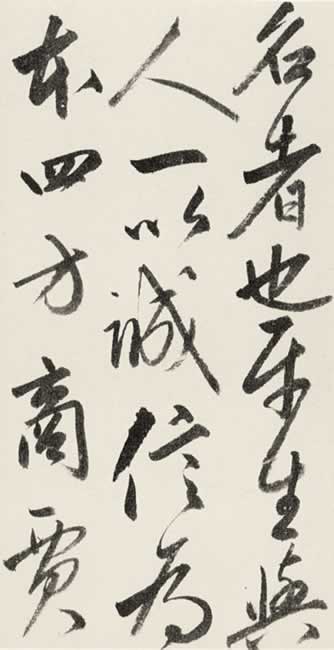 名者也平生與
人一以誠信為
本四方商賈